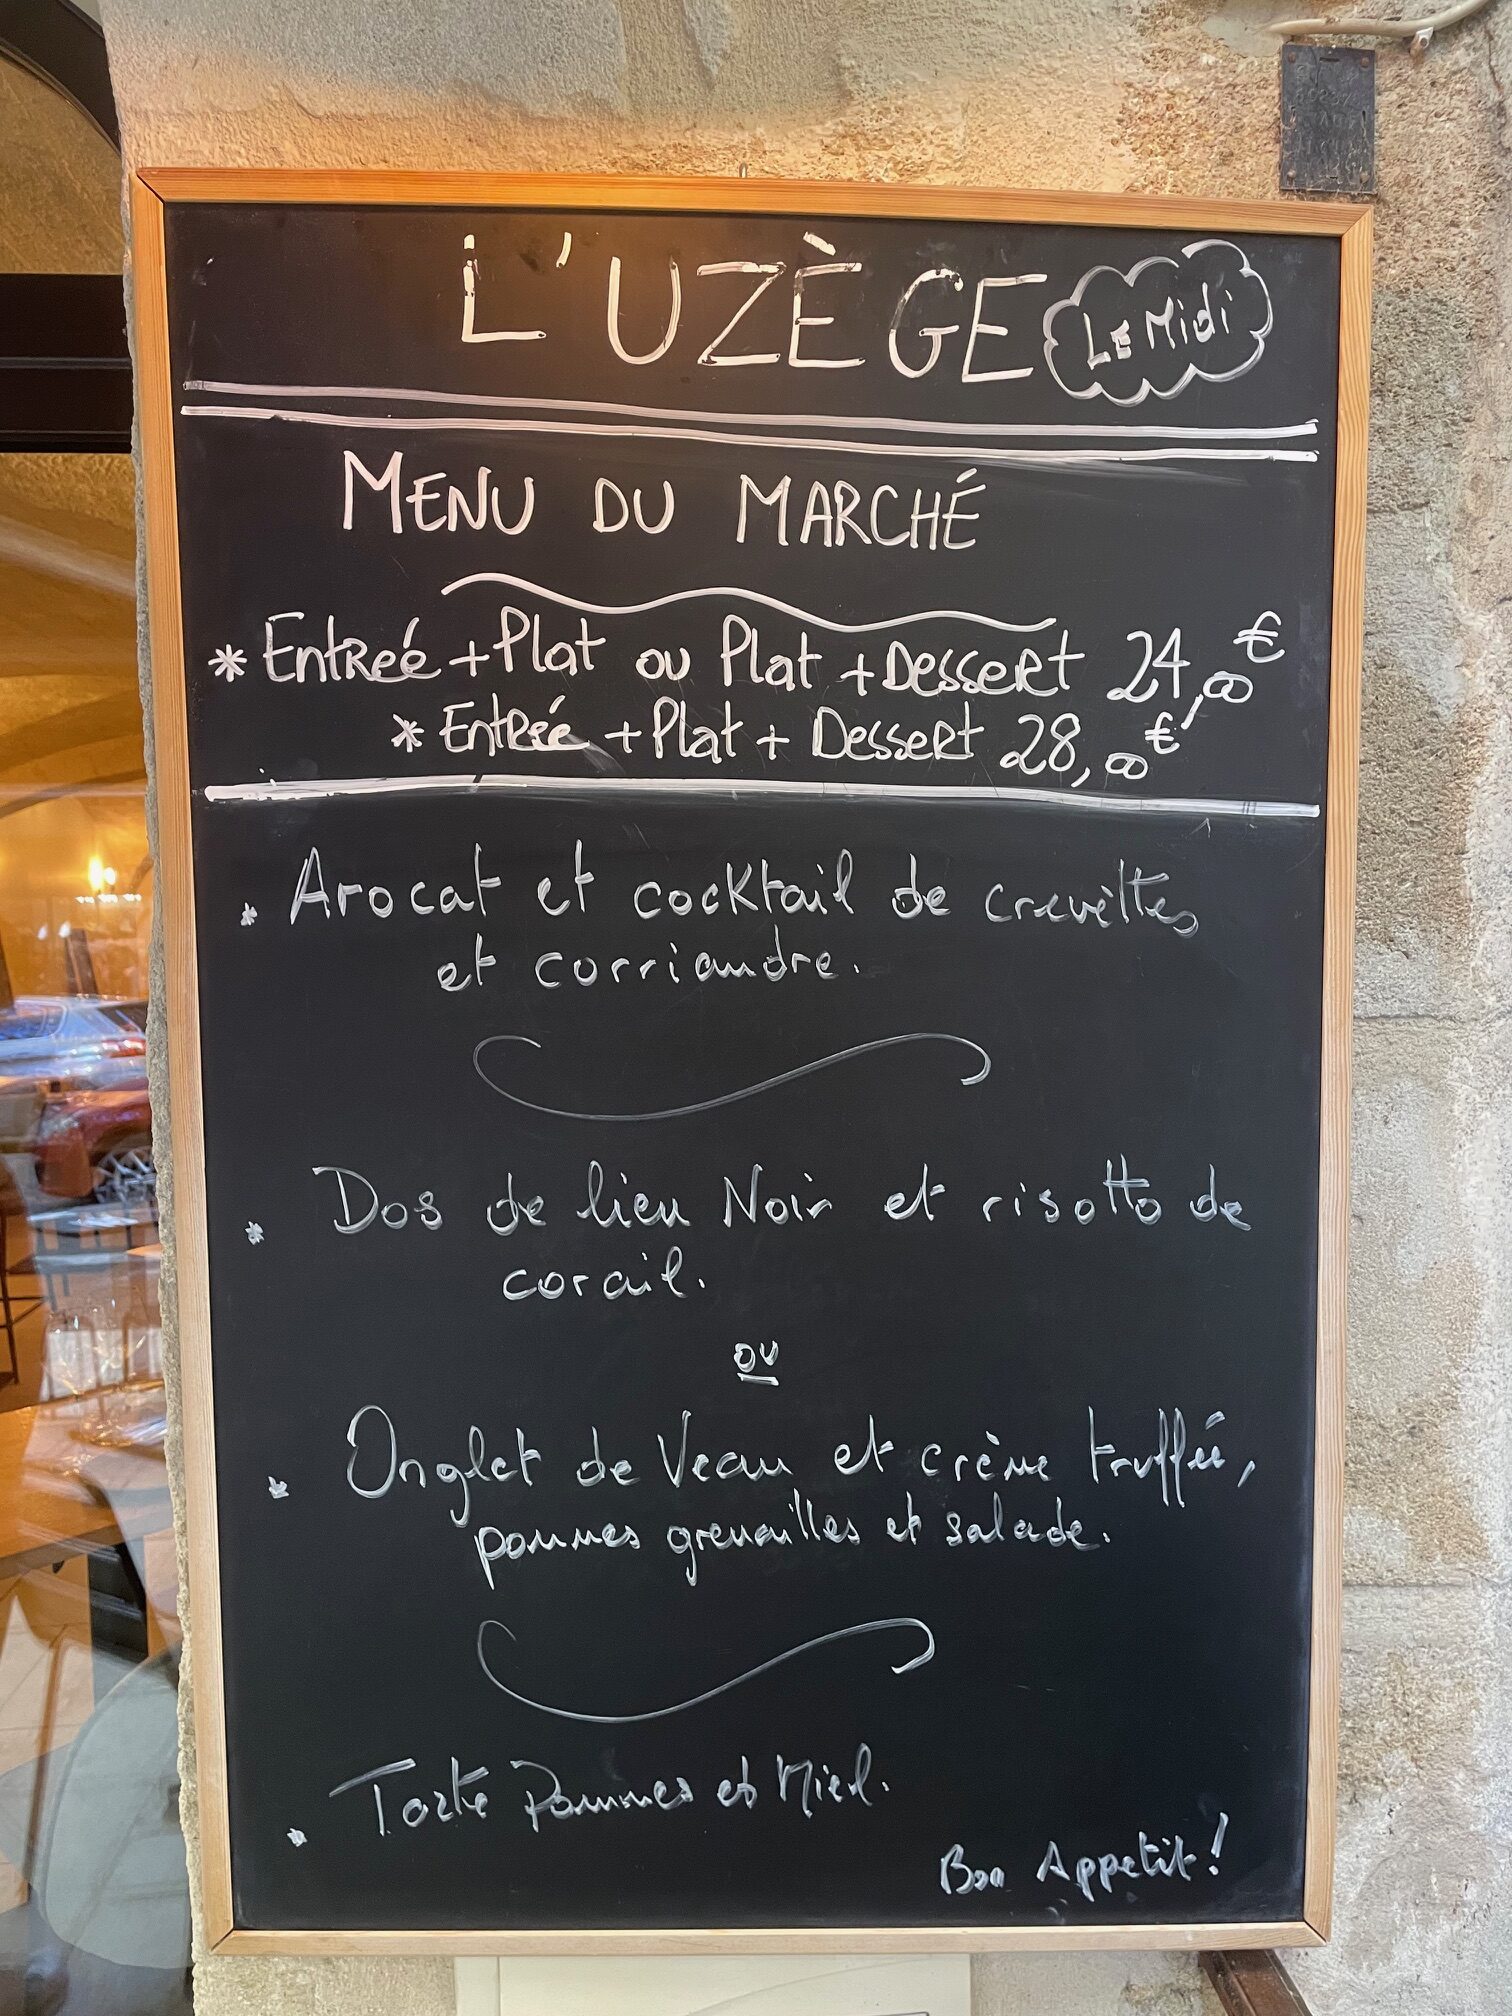 L'UZÈGE LE Midi
MENU DU MARCHÉ
* Entreé + Plat ou Plat + Dessert 24,00€
* Entreé + Plat + Dessert 28,00€
* Avocat et cocktail de crevettes
et corriandre.
* Dos de lieu Noir et risotto de
corail.
ou
* Onglet de Veau et crème truffée,
pommes grenailles et salade.
* Tarte Pommes et Miel.
Bon Appetit!